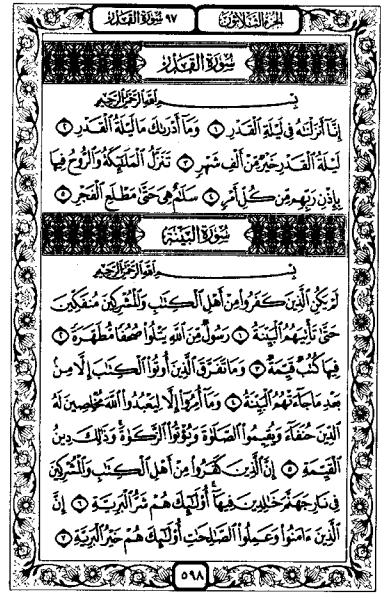 سُورَةُ القَدْرِ ٩٧ الجُزْءُ الثَّلَاثُونَ
سُورَةُ القَدْرِ
بِسْمِ اللَّهِ الرَّحْمَٰنِ الرَّحِيمِ
إِنَّآ أَنزَلْنَٰهُ فِى لَيْلَةِ ٱلْقَدْرِ ١ وَمَآ أَدْرَىٰكَ مَا لَيْلَةُ ٱلْقَدْرِ ٢
لَيْلَةُ ٱلْقَدْرِ خَيْرٌ مِّنْ أَلْفِ شَهْرٍ ٣ تَنَزَّلُ ٱلْمَلَٰٓئِكَةُ وَٱلرُّوحُ فِيهَا
بِإِذْنِ رَبِّهِم مِّن كُلِّ أَمْرٍ ٤ سَلَٰمٌ هِىَ حَتَّىٰ مَطْلَعِ ٱلْفَجْرِ ٥
سُورَةُ البَيِّنَةِ
بِسْمِ اللَّهِ الرَّحْمَٰنِ الرَّحِيمِ
لَمْ يَكُنِ ٱلَّذِينَ كَفَرُوا۟ مِنْ أَهْلِ ٱلْكِتَٰبِ وَٱلْمُشْرِكِينَ مُنفَكِّينَ
حَتَّىٰ تَأْتِيَهُمُ ٱلْبَيِّنَةُ ١ رَسُولٌ مِّنَ ٱللَّهِ يَتْلُوا۟ صُحُفًا مُّطَهَّرَةً ٢
فِيهَا كُتُبٌ قَيِّمَةٌ ٣ وَمَا تَفَرَّقَ ٱلَّذِينَ أُوتُوا۟ ٱلْكِتَٰبَ إِلَّا مِنۢ
بَعْدِ مَا جَآءَتْهُمُ ٱلْبَيِّنَةُ ٤ وَمَآ أُمِرُوٓا۟ إِلَّا لِيَعْبُدُوا۟ ٱللَّهَ مُخْلِصِينَ لَهُ
ٱلدِّينَ حُنَفَآءَ وَيُقِيمُوا۟ ٱلصَّلَوٰةَ وَيُؤْتُوا۟ ٱلزَّكَوٰةَ وَذَٰلِكَ دِينُ
ٱلْقَيِّمَةِ ٥ إِنَّ ٱلَّذِينَ كَفَرُوا۟ مِنْ أَهْلِ ٱلْكِتَٰبِ وَٱلْمُشْرِكِينَ
فِى نَارِ جَهَنَّمَ خَٰلِدِينَ فِيهَآ أُو۟لَٰٓئِكَ هُمْ شَرُّ ٱلْبَرِيَّةِ ٦ إِنَّ
ٱلَّذِينَ ءَامَنُوا۟ وَعَمِلُوا۟ ٱلصَّٰلِحَٰتِ أُو۟لَٰٓئِكَ هُمْ خَيْرُ ٱلْبَرِيَّةِ ٧
٥٩٨